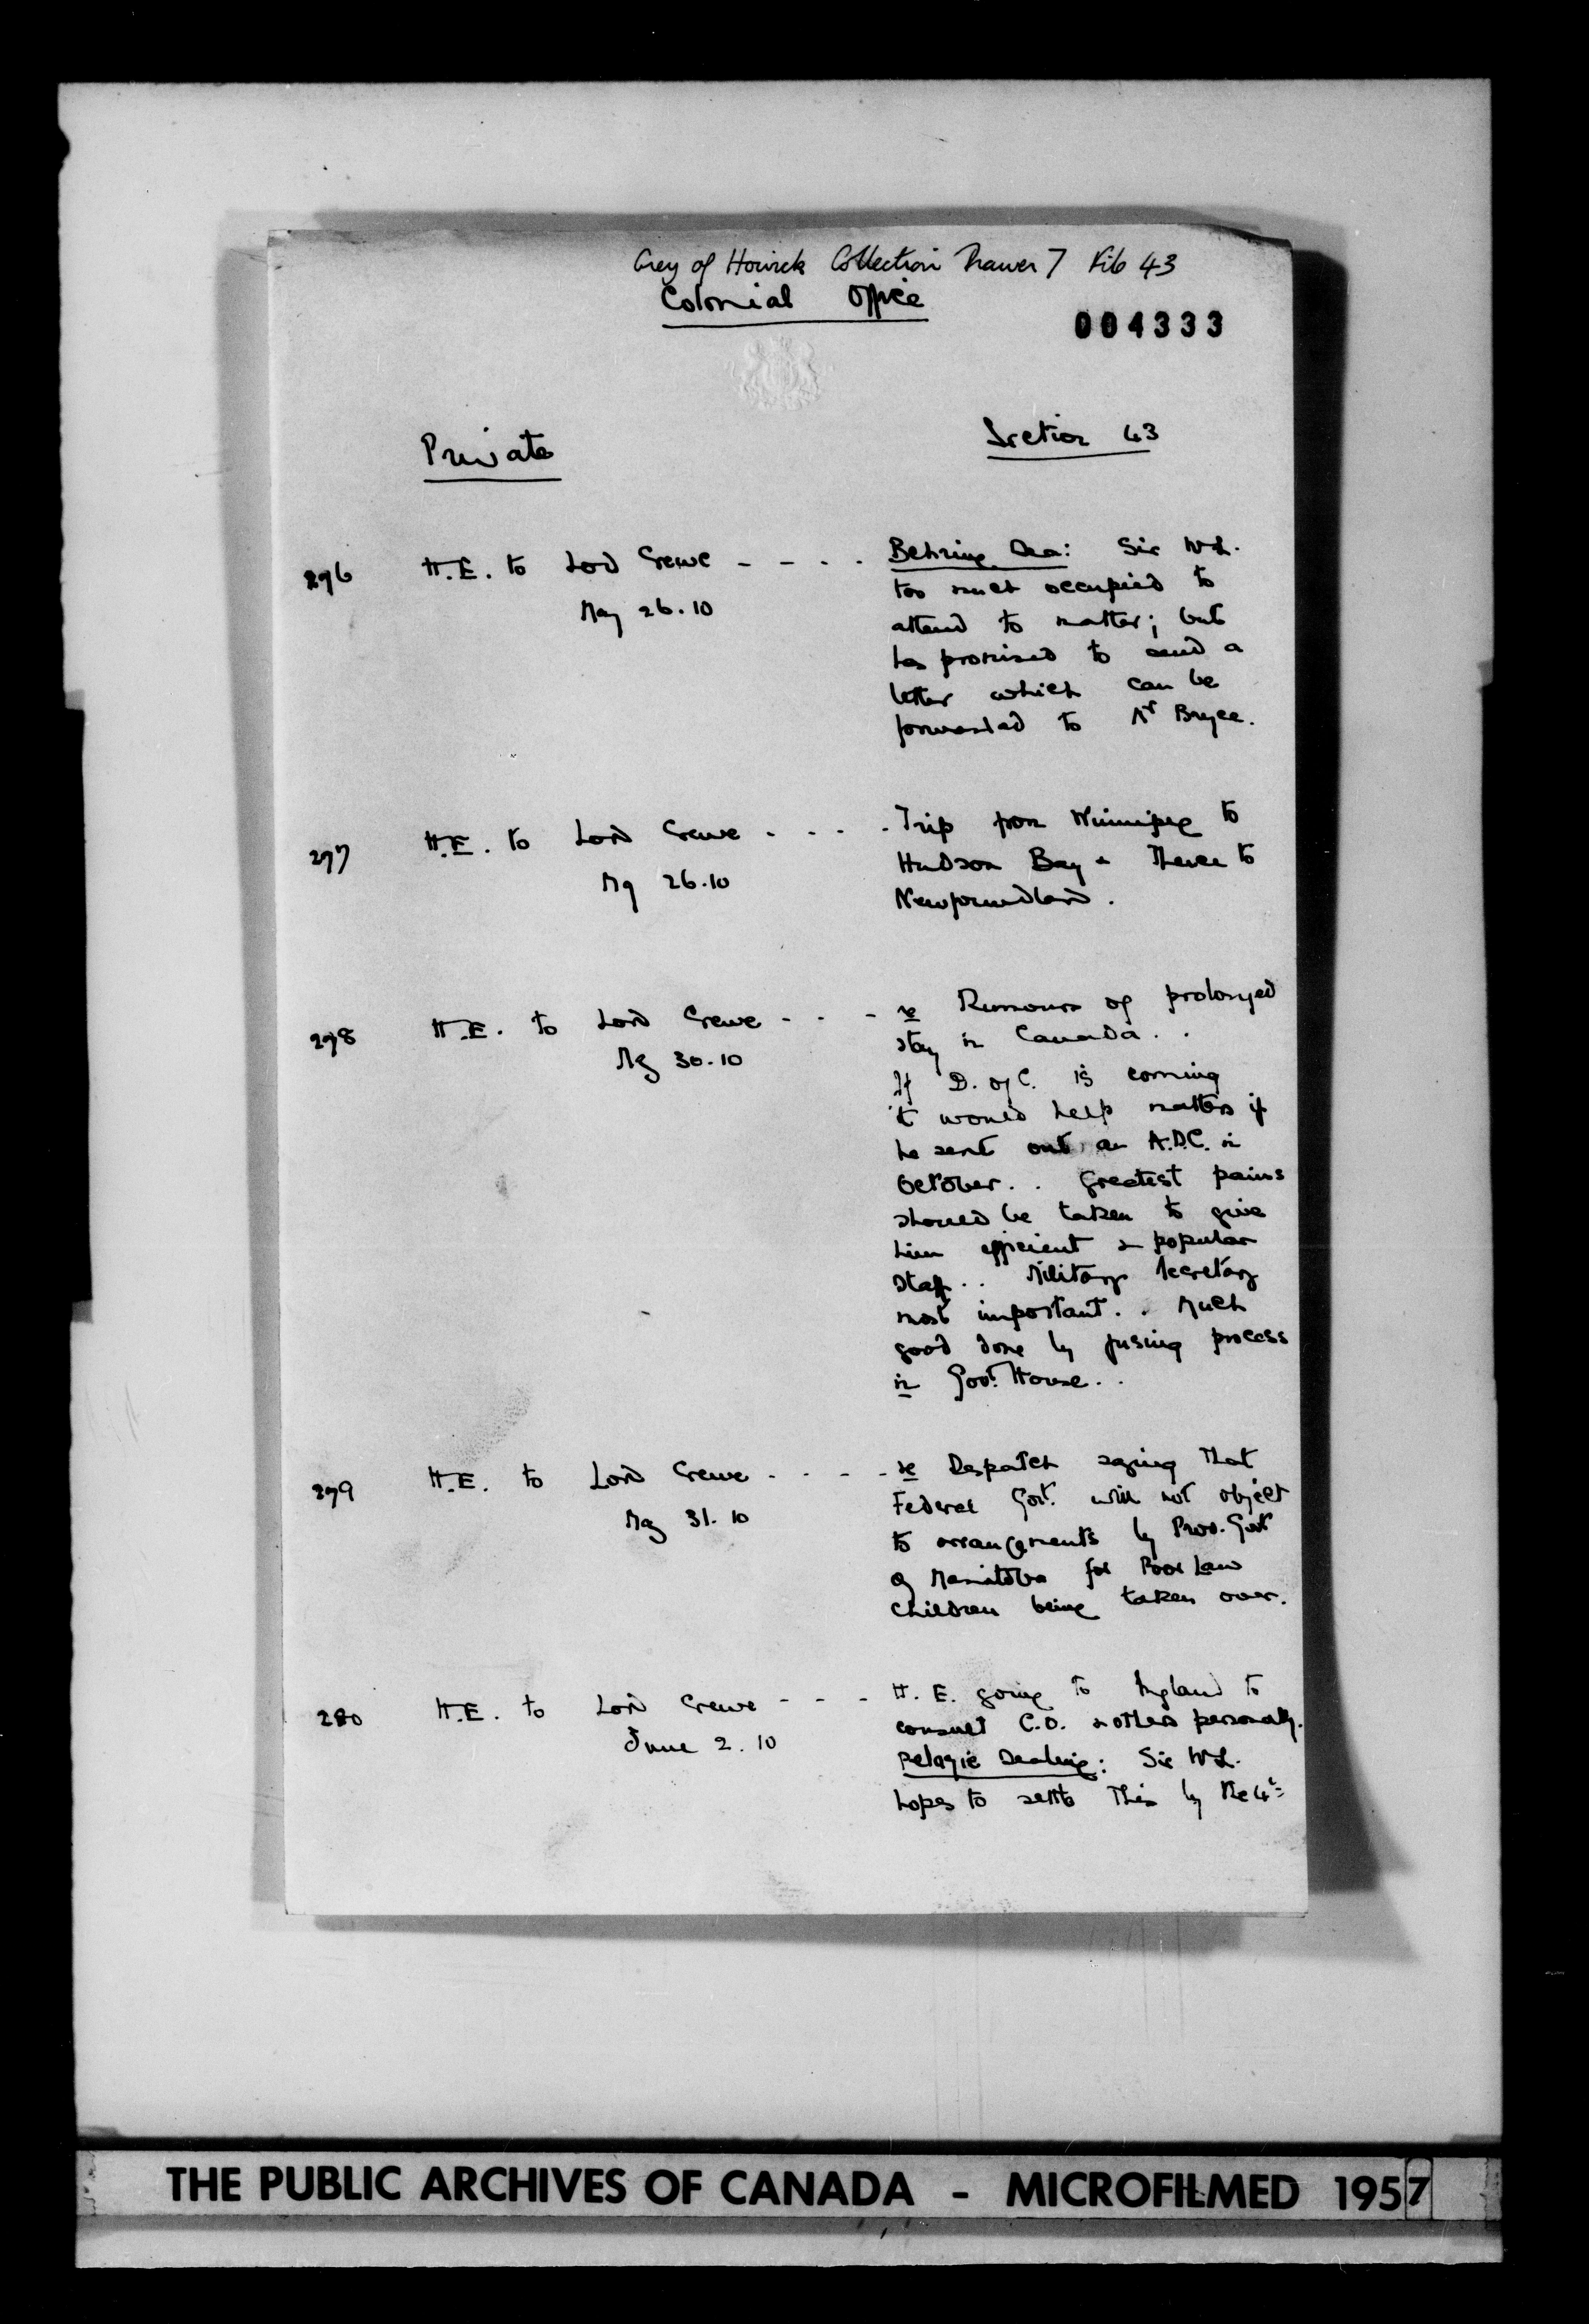 Grey of Howick Collection Drawer 7 File 43
Colonial Office
004333
Private
Section 43
276 H.E. to Lord Crewe - - - - Behring Sea: Sir W.L.
May 26.10
too much occupied to
attend to matter; but
has promised to send a
letter which can be
forwarded to Mr Bryce.
277 H.E. to Lord Crewe - - - - Trip from Winnipeg to
May 26.10
Hudson Bay & thence to
Newfoundland.
278 H.E. to Lord Crewe - - - re Rumours of prolonged
May 30.10
stay in Canada . .
If D. of C. is coming
it would help matters if
he sent out an A.D.C. in
October . . Greatest pains
should be taken to give
him efficient & popular
staff . . Military Secretary
most important . . Much
good done by fusing process
in Govt. House . .
279 H.E. to Lord Crewe - - - - re Despatch saying that
May 31.10
Federal Govt. will not object
to arrangements by Prov. Govt
of Manitoba for Poor Law
children being taken over.
280 H.E. to Lord Crewe - - - H.E. going to England to
June 2.10
consult C.O. & others personally.
Pelagic Sealing: Sir W.L.
hopes to settle this by the 4th
THE PUBLIC ARCHIVES OF CANADA - MICROFILMED 1957